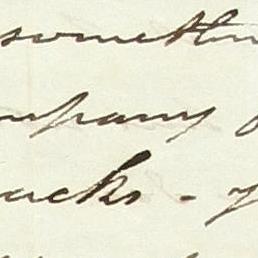 somethin
ompany
acks - y